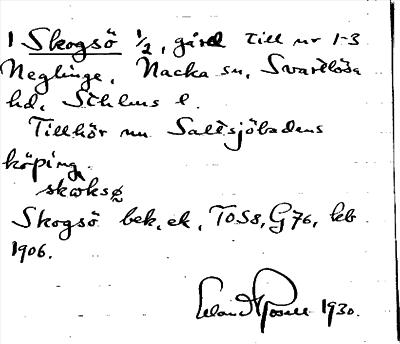 1 Skogsö 1/2, gård till nr 1-3
Neglinge, Nacka sn, Svartlösa
hd, Sthlms l.
Tillhör nu Saltsjöbadens
köping.
skωksø
Skogsö bek, ek, TOS8, G76, kb
1906.
Erland Rosell 1930.